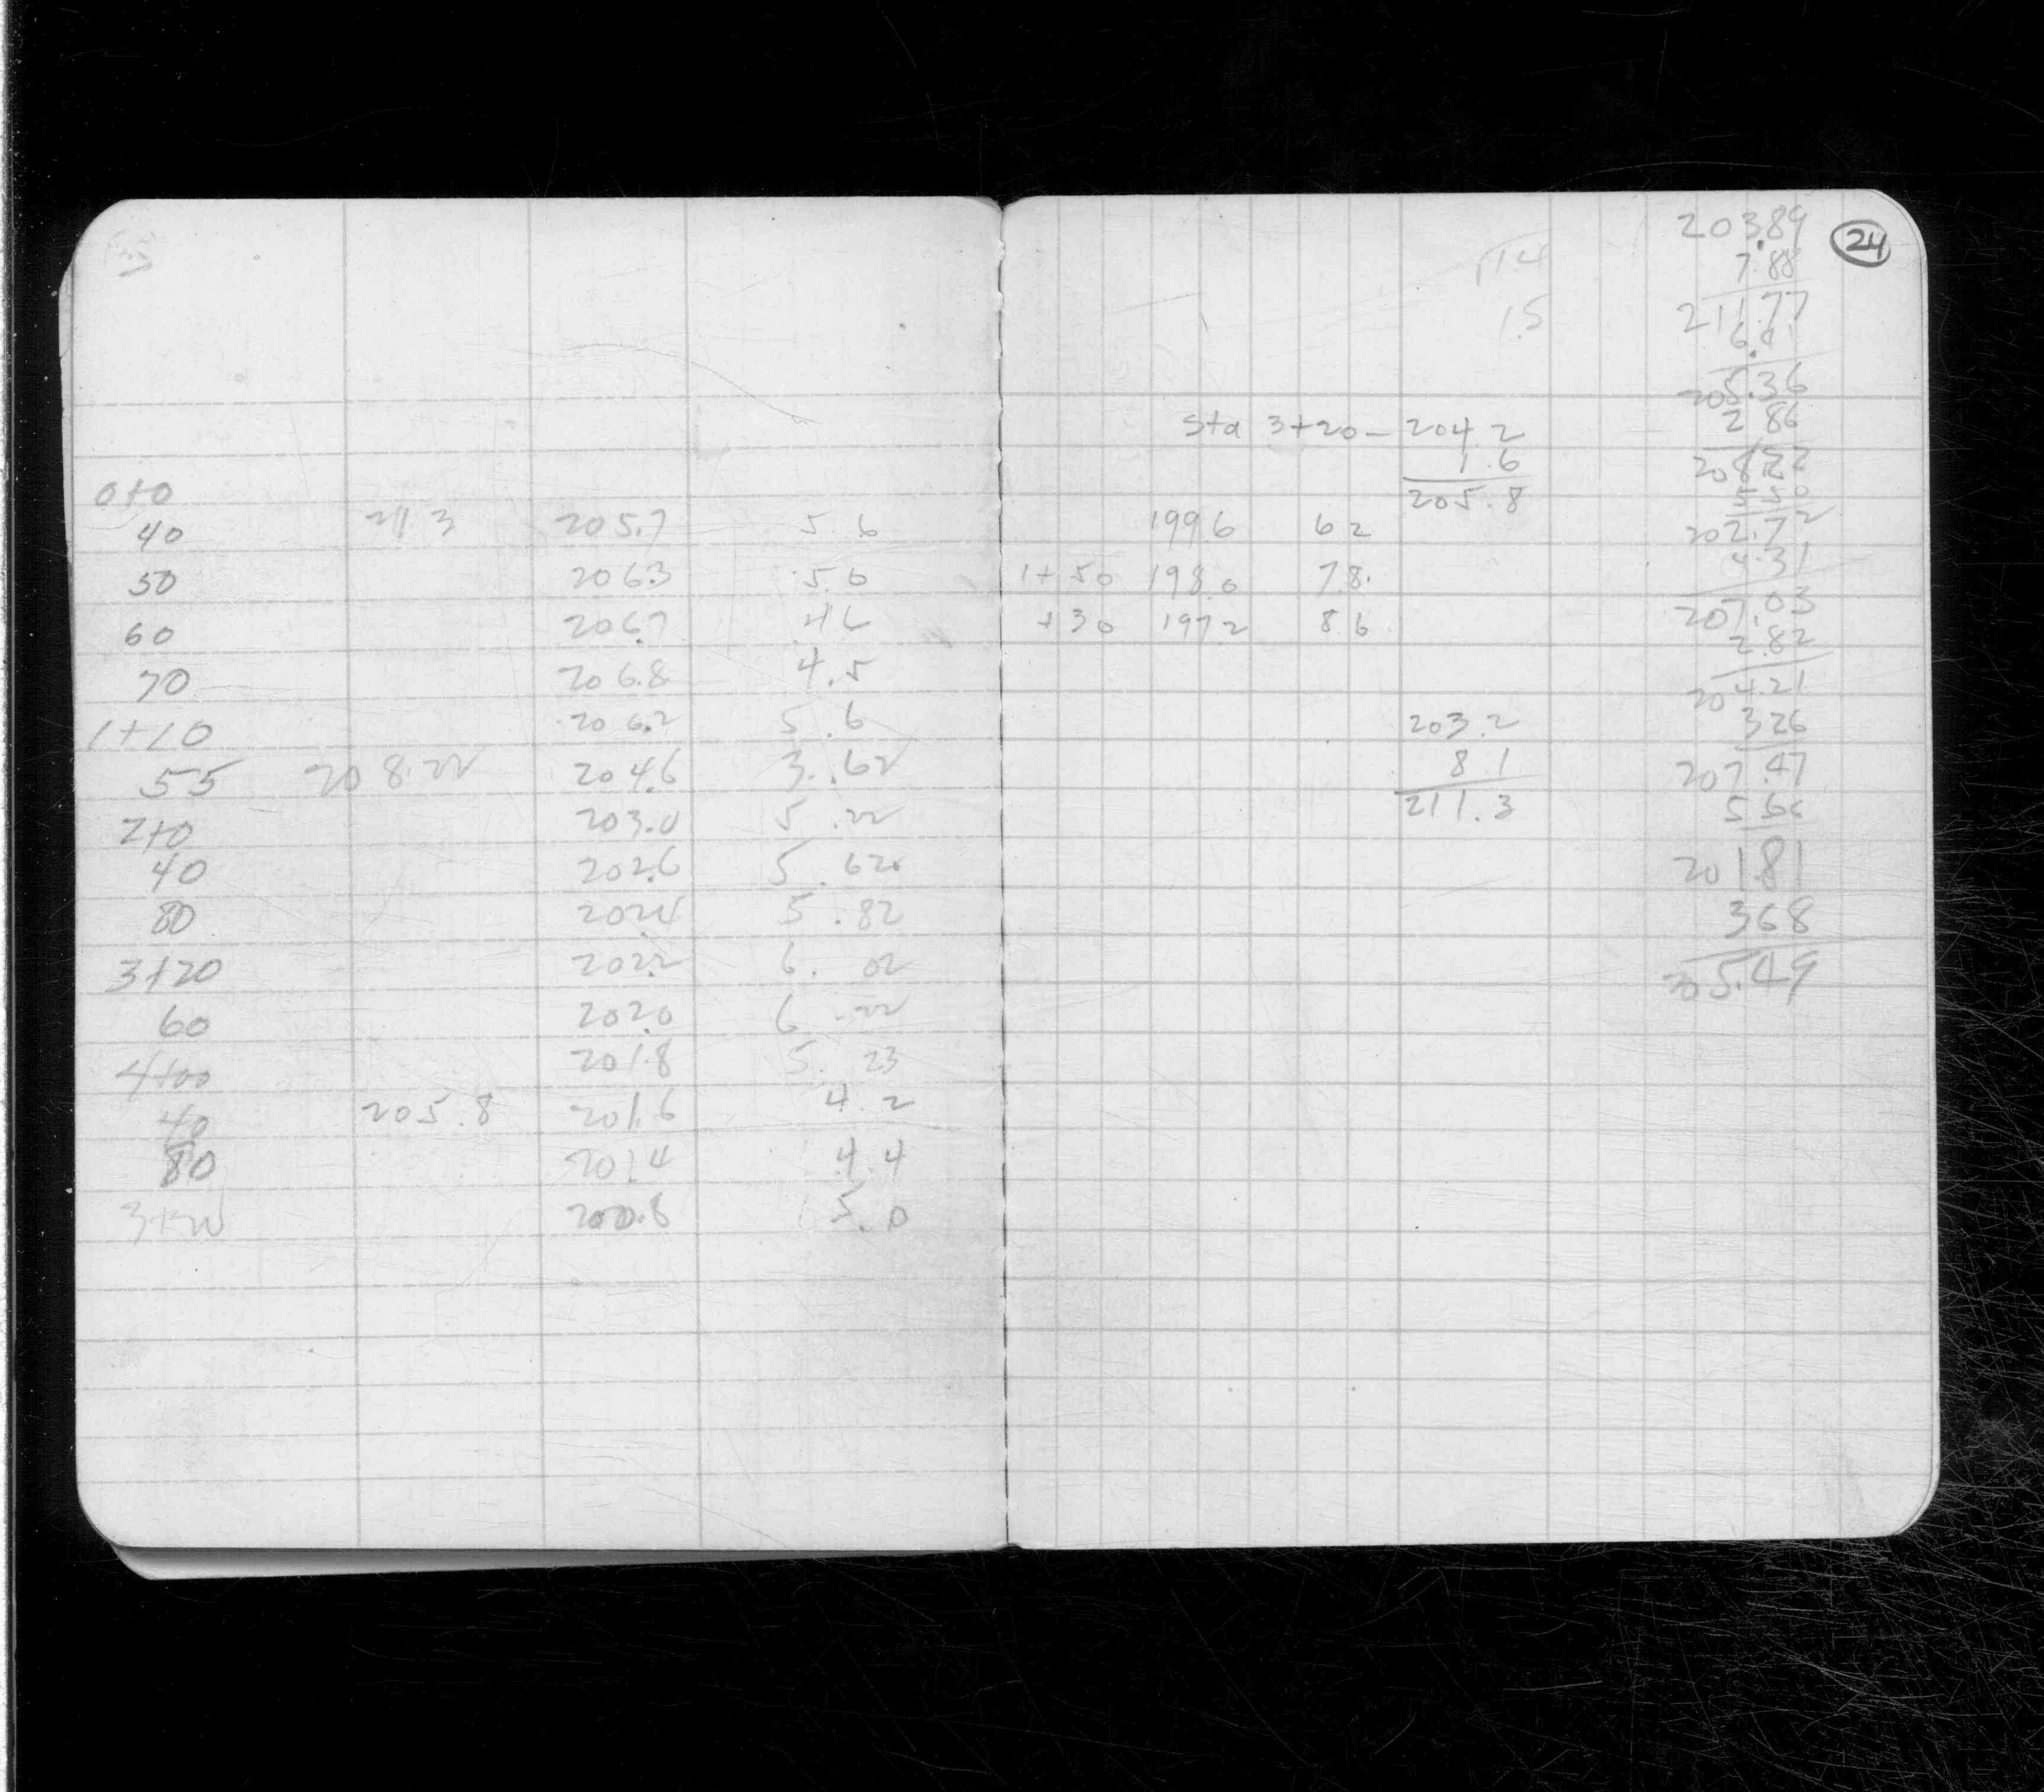 0+0
40 211 3 205.7 5.6
50 206.3 5.0
60 206.7 4.6
70 206.8 4.5
1+10 206.2 5.6
55 208.22 204.6 3.62
2+0 203.0 5.22
40 202.6 5.62
80 202.4 5.82
3+20 202.2 6.02
60 202.0 6.22
4+00 201.8 5.23
40 205.8 201.6 4.2
80 201.4 4.4
3+20 200.8 5.0
24
114
1.5
Sta 3+20 - 204.2
1.6
205.8
199 6 6 2
1+50 198.0 7.8.
+30 197.2 8 6
203.2
8 1
211.3
203.89
7.88
211.77
6.41
205.36
2 86
208.22
5 50
202.72
4.31
207.03
2.82
204.21
3 26
207.47
5 66
201 81
3 68
205.49